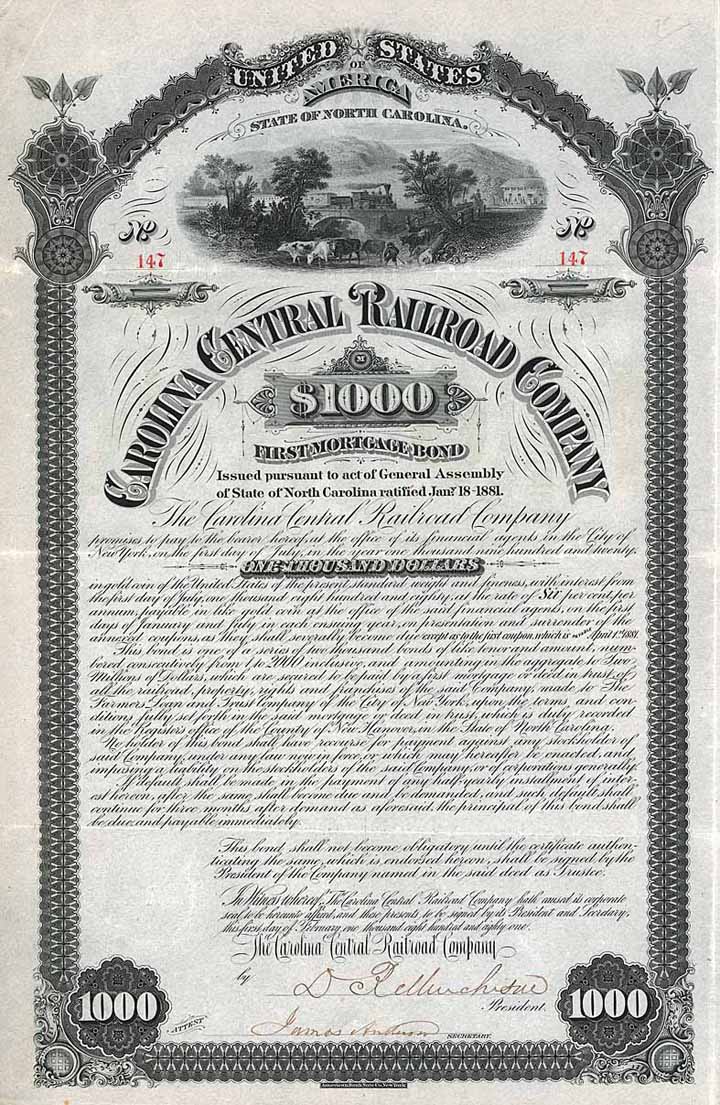 UNITED STATES
OF
AMERICA
STATE OF NORTH CAROLINA.
No No
147 147
CAROLINA CENTRAL RAILROAD COMPANY
$1000
FIRST MORTGAGE BOND
Issued pursuant to act of General Assembly
of State of North Carolina ratified Jany. 18-1881.
The Carolina Central Railroad Company
promises to pay to the bearer hereof, at the office of its financial agents in the City of
New York, on the first day of July, in the year one thousand nine hundred and twenty,
ONE THOUSAND DOLLARS
in gold coin of the United States of the present standard weight and fineness, with interest from
the first day of July, one thousand eight hundred and eighty, at the rate of Six per cent, per
annum, payable in like gold coin at the office of the said financial agents, on the first
days of January and July in each ensuing year, on presentation and surrender of the
annexed coupons, as they shall severally become due except as to the first coupon, which is April 1st 1881.
This bond is one of a series of two thousand bonds of like tenor and amount, num-
bered consecutively from 1 to 2000 inclusive, and amounting in the aggregate to Two
Millions of Dollars, which are secured to be paid by a first mortgage or deed in trust, of
all the railroad, property, rights and franchises of the said Company, made to The
Farmers Loan and Trust Company of the City of New York, upon the terms, and con-
ditions, fully set forth in the said mortgage or deed in trust, which is duly recorded
in the Registers office of the County of New Hanover, in the State of North Carolina.
No holder of this bond shall have recourse for payment against any stockholder of
said Company, under any law now in force, or which may hereafter be enacted, and
imposing a liability on the stockholders of the said Company, or of corporations generally.
If default shall be made in the payment of any half-yearly installment of inter-
est hereon, after the same shall become due and be demanded, and such default shall
continue for three months after demand as aforesaid, the principal of this bond shall
be due and payable immediately.
This bond shall not become obligatory until the certificate authen-
ticating the same, which is endorsed hereon, shall be signed by the
President of the Company named in the said deed as Trustee.
In Witness whereof, The Carolina Central Railroad Company hath caused its corporate
seal to be hereunto affixed, and these presents to be signed by its President and Secretary,
this first day of February, one thousand eight hundred and eighty one.
The Carolina Central Railroad Company
by
President.
1000 1000
ATTEST
James Anderson SECRETARY.
American Bank Note Co. New York